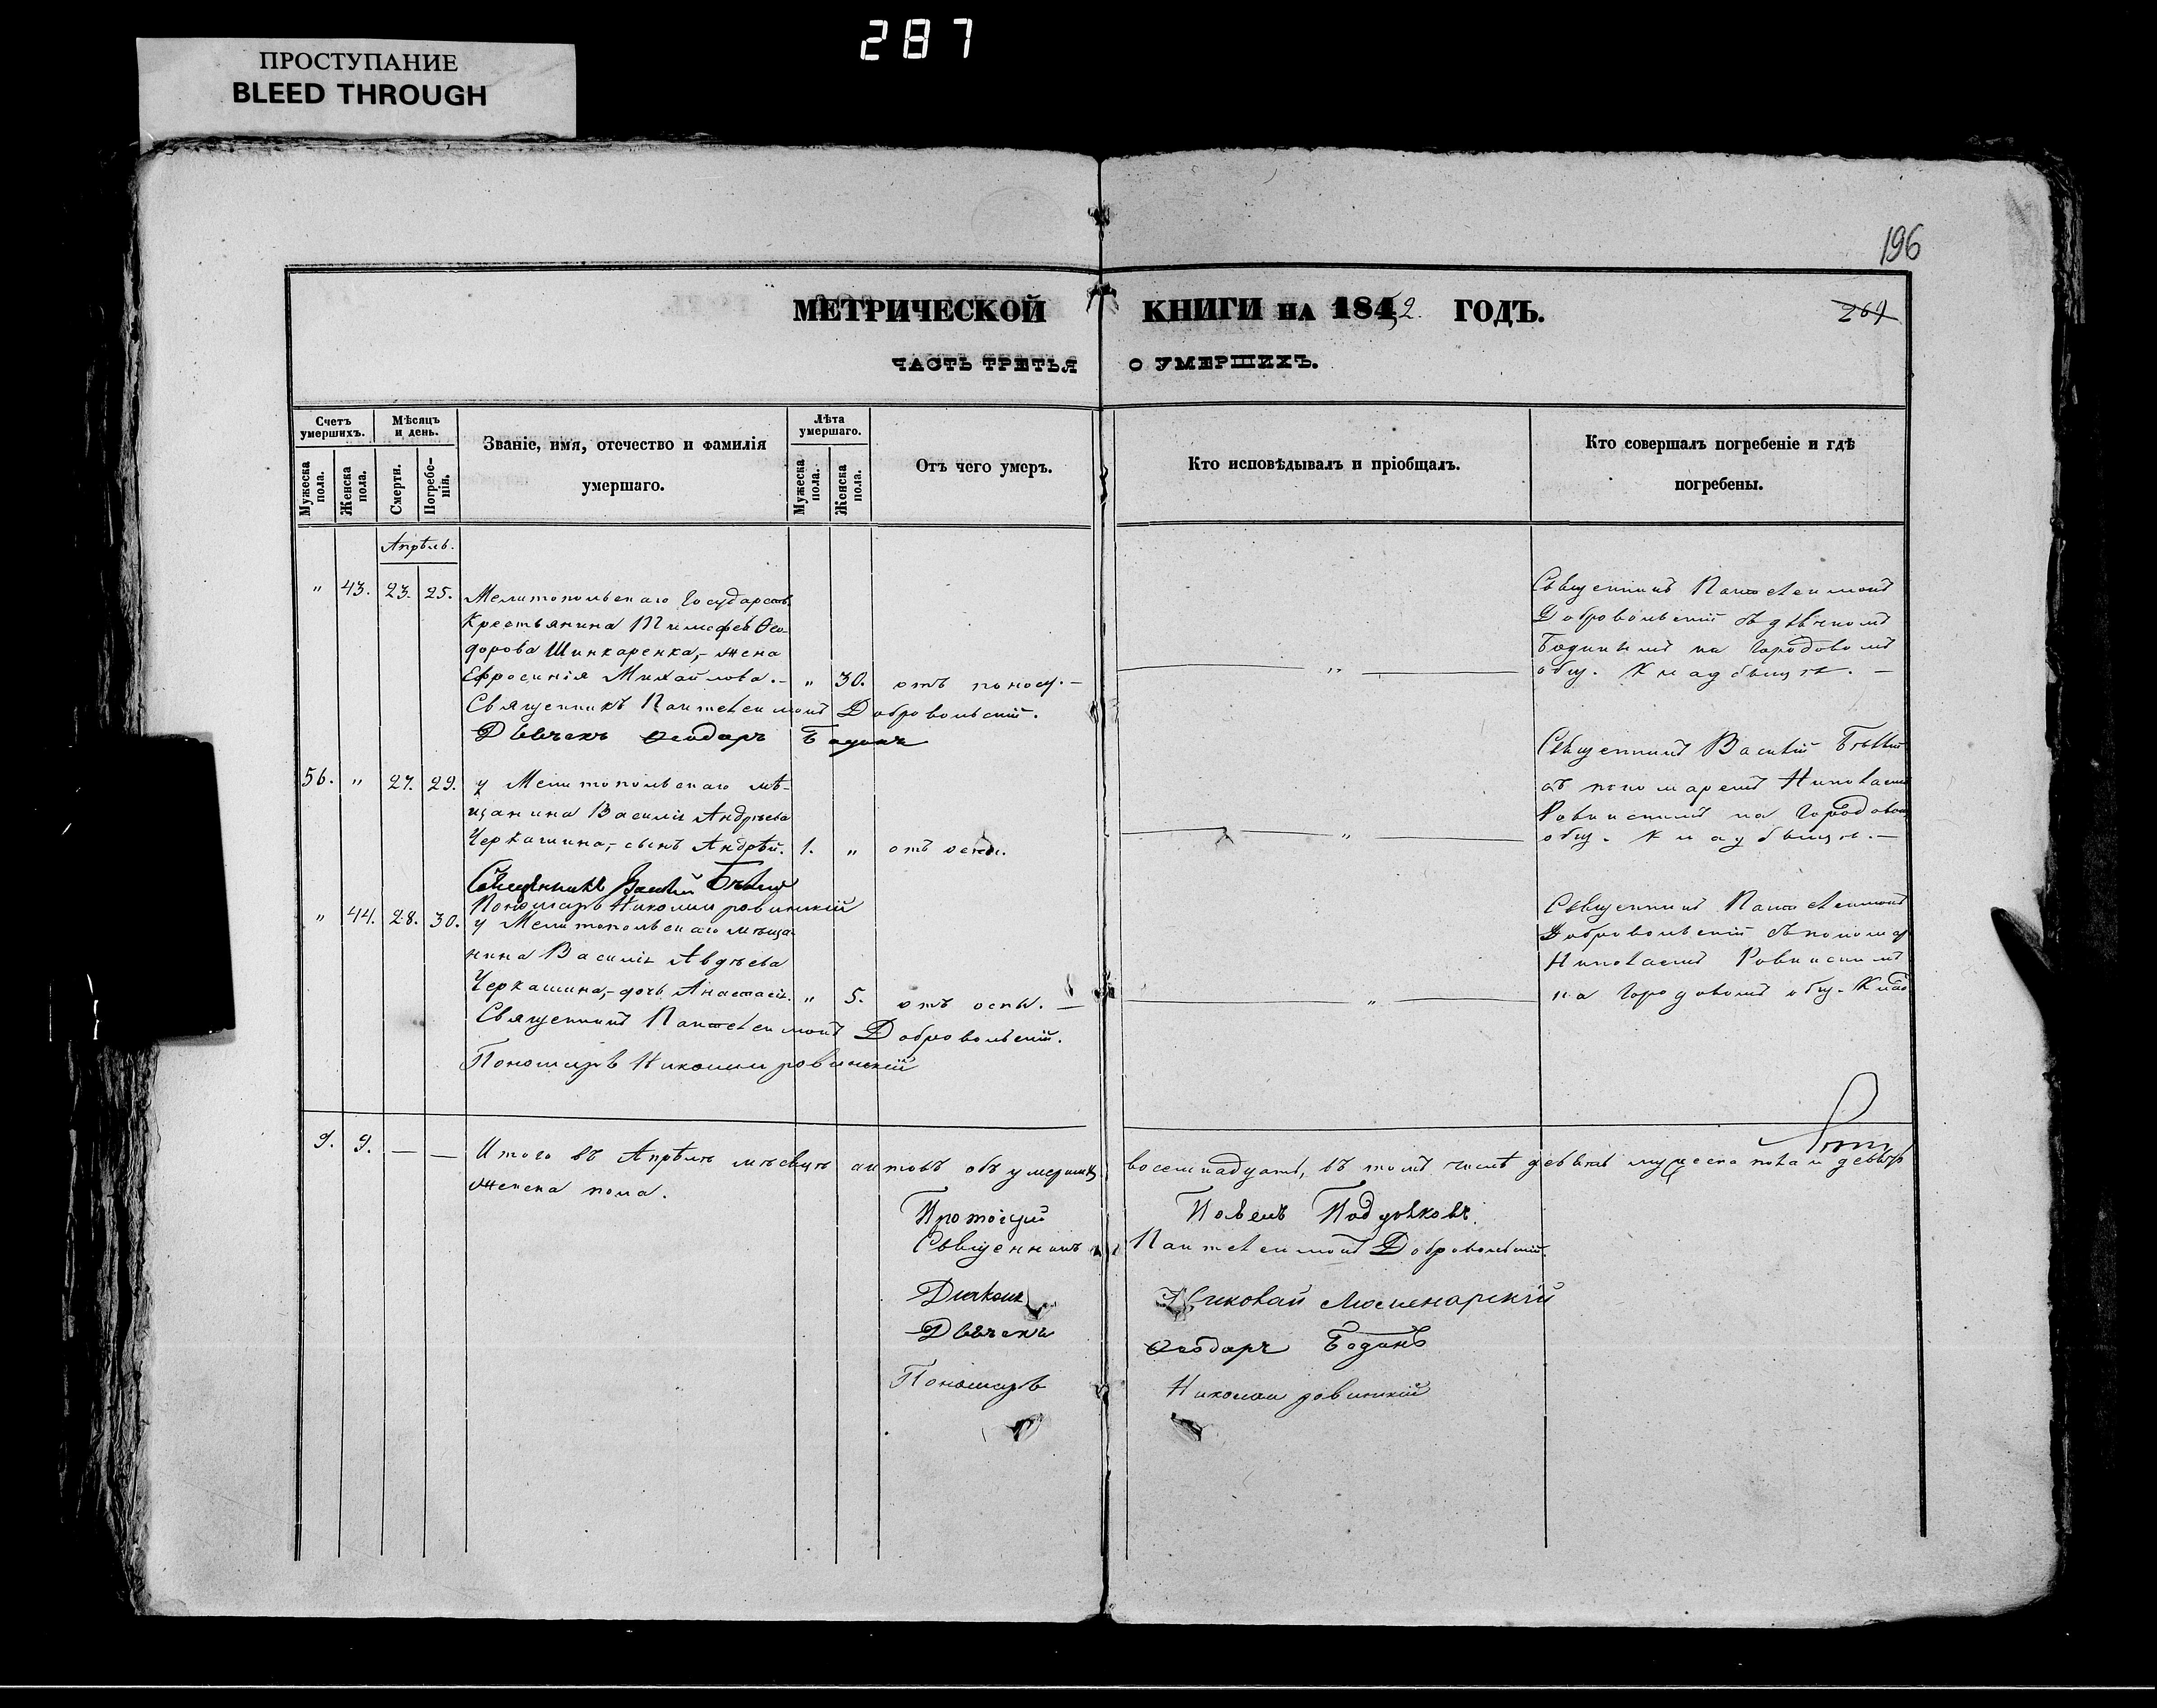 287
ПРОСТУПАНИЕ
BLEED THROUGH
196
МЕТРИЧЕСКОЙ КНИГИ НА 1842 ГОДЪ.
ЧАСТЬ ТРЕТЬЯ О УМЕРШИХЪ.
Счетъ умершихъ.
Мужеска пола.
Женска пола.
Мѣсяцъ и день.
Смерти.
Погребенія.
Званіе, имя, отечество и фамилія
умершаго.
Лѣта умершаго.
Мужеска пола.
Женска пола.
Отъ чего умеръ.
Кто исповѣдывалъ и пріобщалъ.
Кто совершалъ погребеніе и гдѣ
погребены.
Апрѣль.
" 43. 23. 25. Мелитопольскаго Государств.
Крестьянина Тимофея Ѳео-
дорова Шинкаренка,- жена
Ефросинія Михайлова.- " 30. отъ поносу.- "
Священникъ Пантелеимонъ Добровольскій.
Дьячекъ Ѳеодоръ Бодинъ
Священникъ Пантелеимонъ
Добровольскій съ дьячкомъ
Бодинымъ на Городовомъ
общ. Кладбищѣ.-
56. " 27. 29. у Мелитопольскаго мѣ-
щанина Василія Андрѣева
Черкашина,- сынъ Андрѣй. 1. " отъ оспы. "
Священникъ Василій Бѣлый
Пономарь Николай Ровинскій
Священникъ Василій Бѣлый
съ пономаремъ Николаемъ
Ровинскимъ на Городовомъ
общ. Кладбищѣ.-
" 44. 28. 30. у Мелитопольскаго мѣща-
нина Василія Авдѣева
Черкашина,- дочь Анастасія. " 5. отъ оспы. - "
Священникъ Пантелеимонъ Добровольскій.
Пономарь Николай Ровинскій
Священникъ Пантелеимонъ
Добровольскій съ пономар
Николаемъ Ровинскимъ
на Городовомъ общ. Клад
9. 9. — — Итого въ Апрѣлѣ мѣсяцѣ актовъ объ умершихъ восемнадцать, въ томъ числѣ девять мужеска пола и девять
женска пола.
Протоіерей Павелъ
Священникъ Пантелеимонъ Добровольскій.
Діаконъ Николай
Дьячекъ Ѳеодоръ Бодинъ
Пономарь Николай Ровинскій